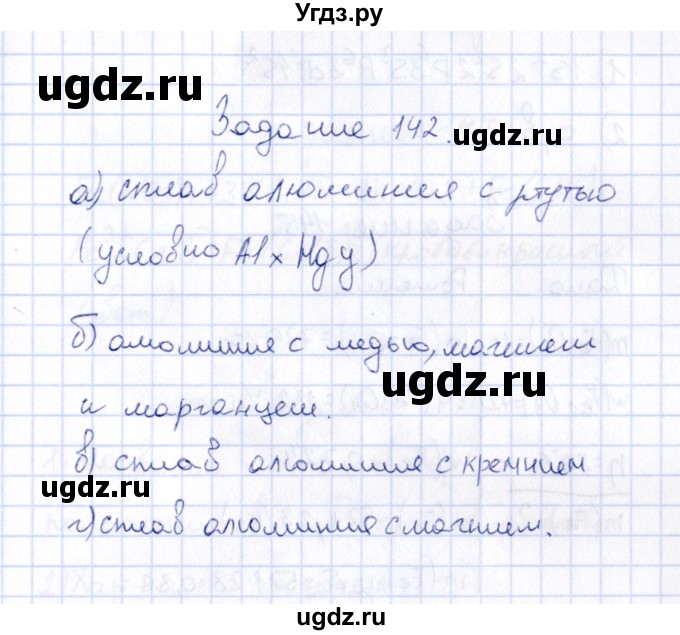 Угдз.ру
ugdz.ru
Задание 142.
ugdz.ru
а) сплав алюминия с ртутью
(условно AlxHgy)
б) алюминия с медью, магнием
ugdz.ru
и марганцем.
в) сплав алюминия с кремнием
ugdz.ru
г) сплав алюминия с магнием.
ugdz.ru